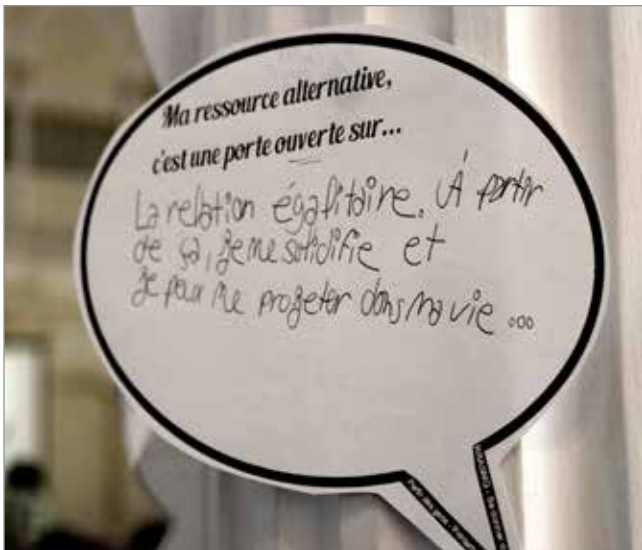 Ma ressource alternative,
c'est une porte ouverte sur...
La relation égalitaire. À partir
de ça, je me solidifie et
je peux me projeter dans ma vie ...